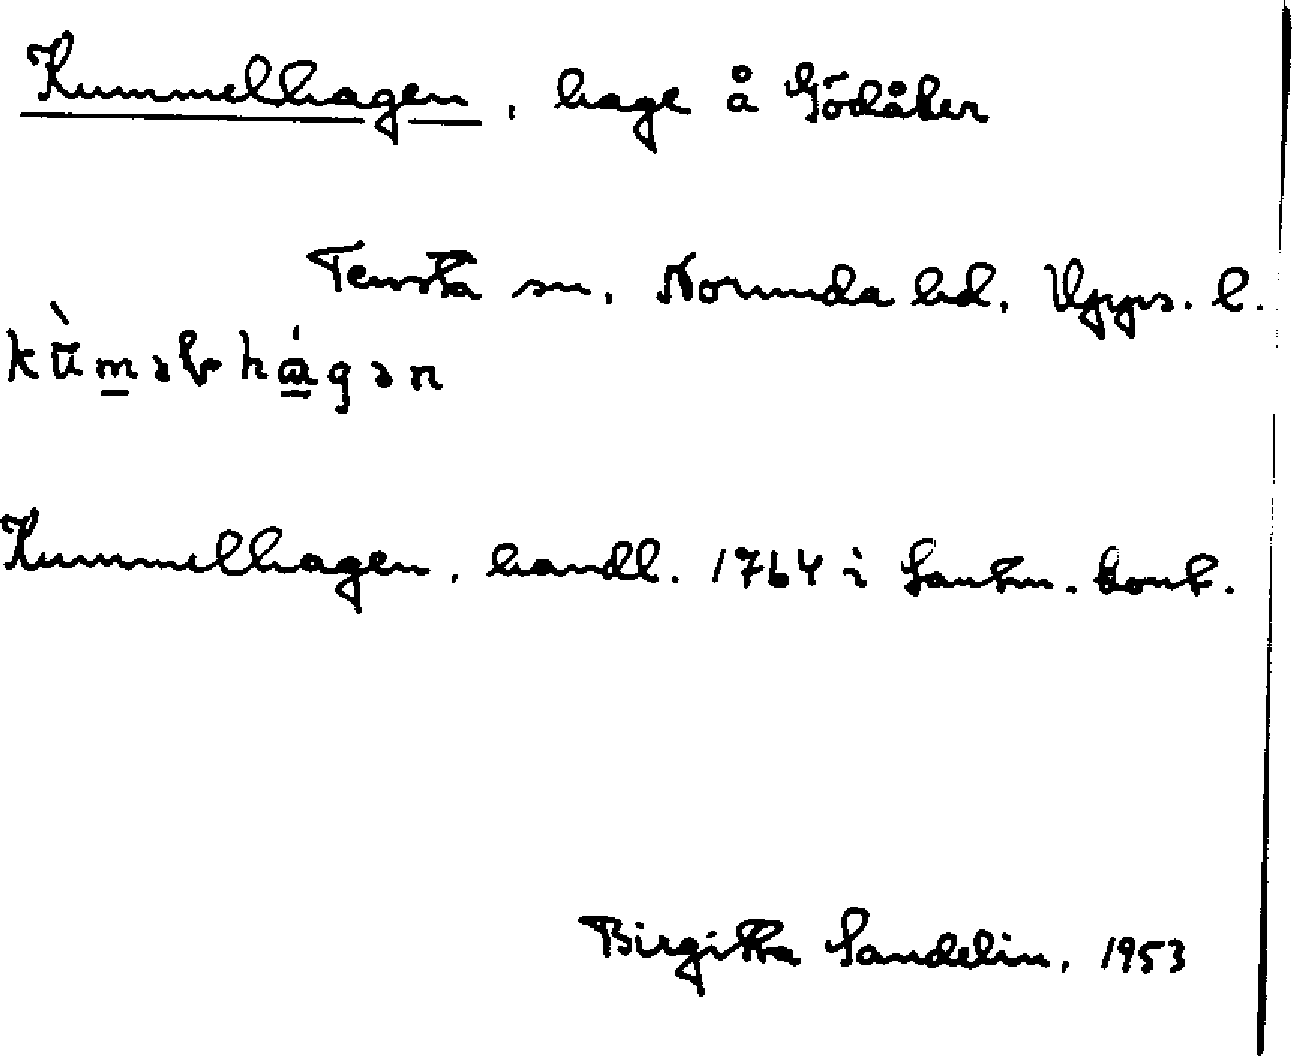 Kummelhagen, hage å Gödåker
Tensta sn. Norunda hd. Upps. l.
Kummelhagen, handl. 1764 i Lantm. kont.
Birgitta Sandelin, 1953